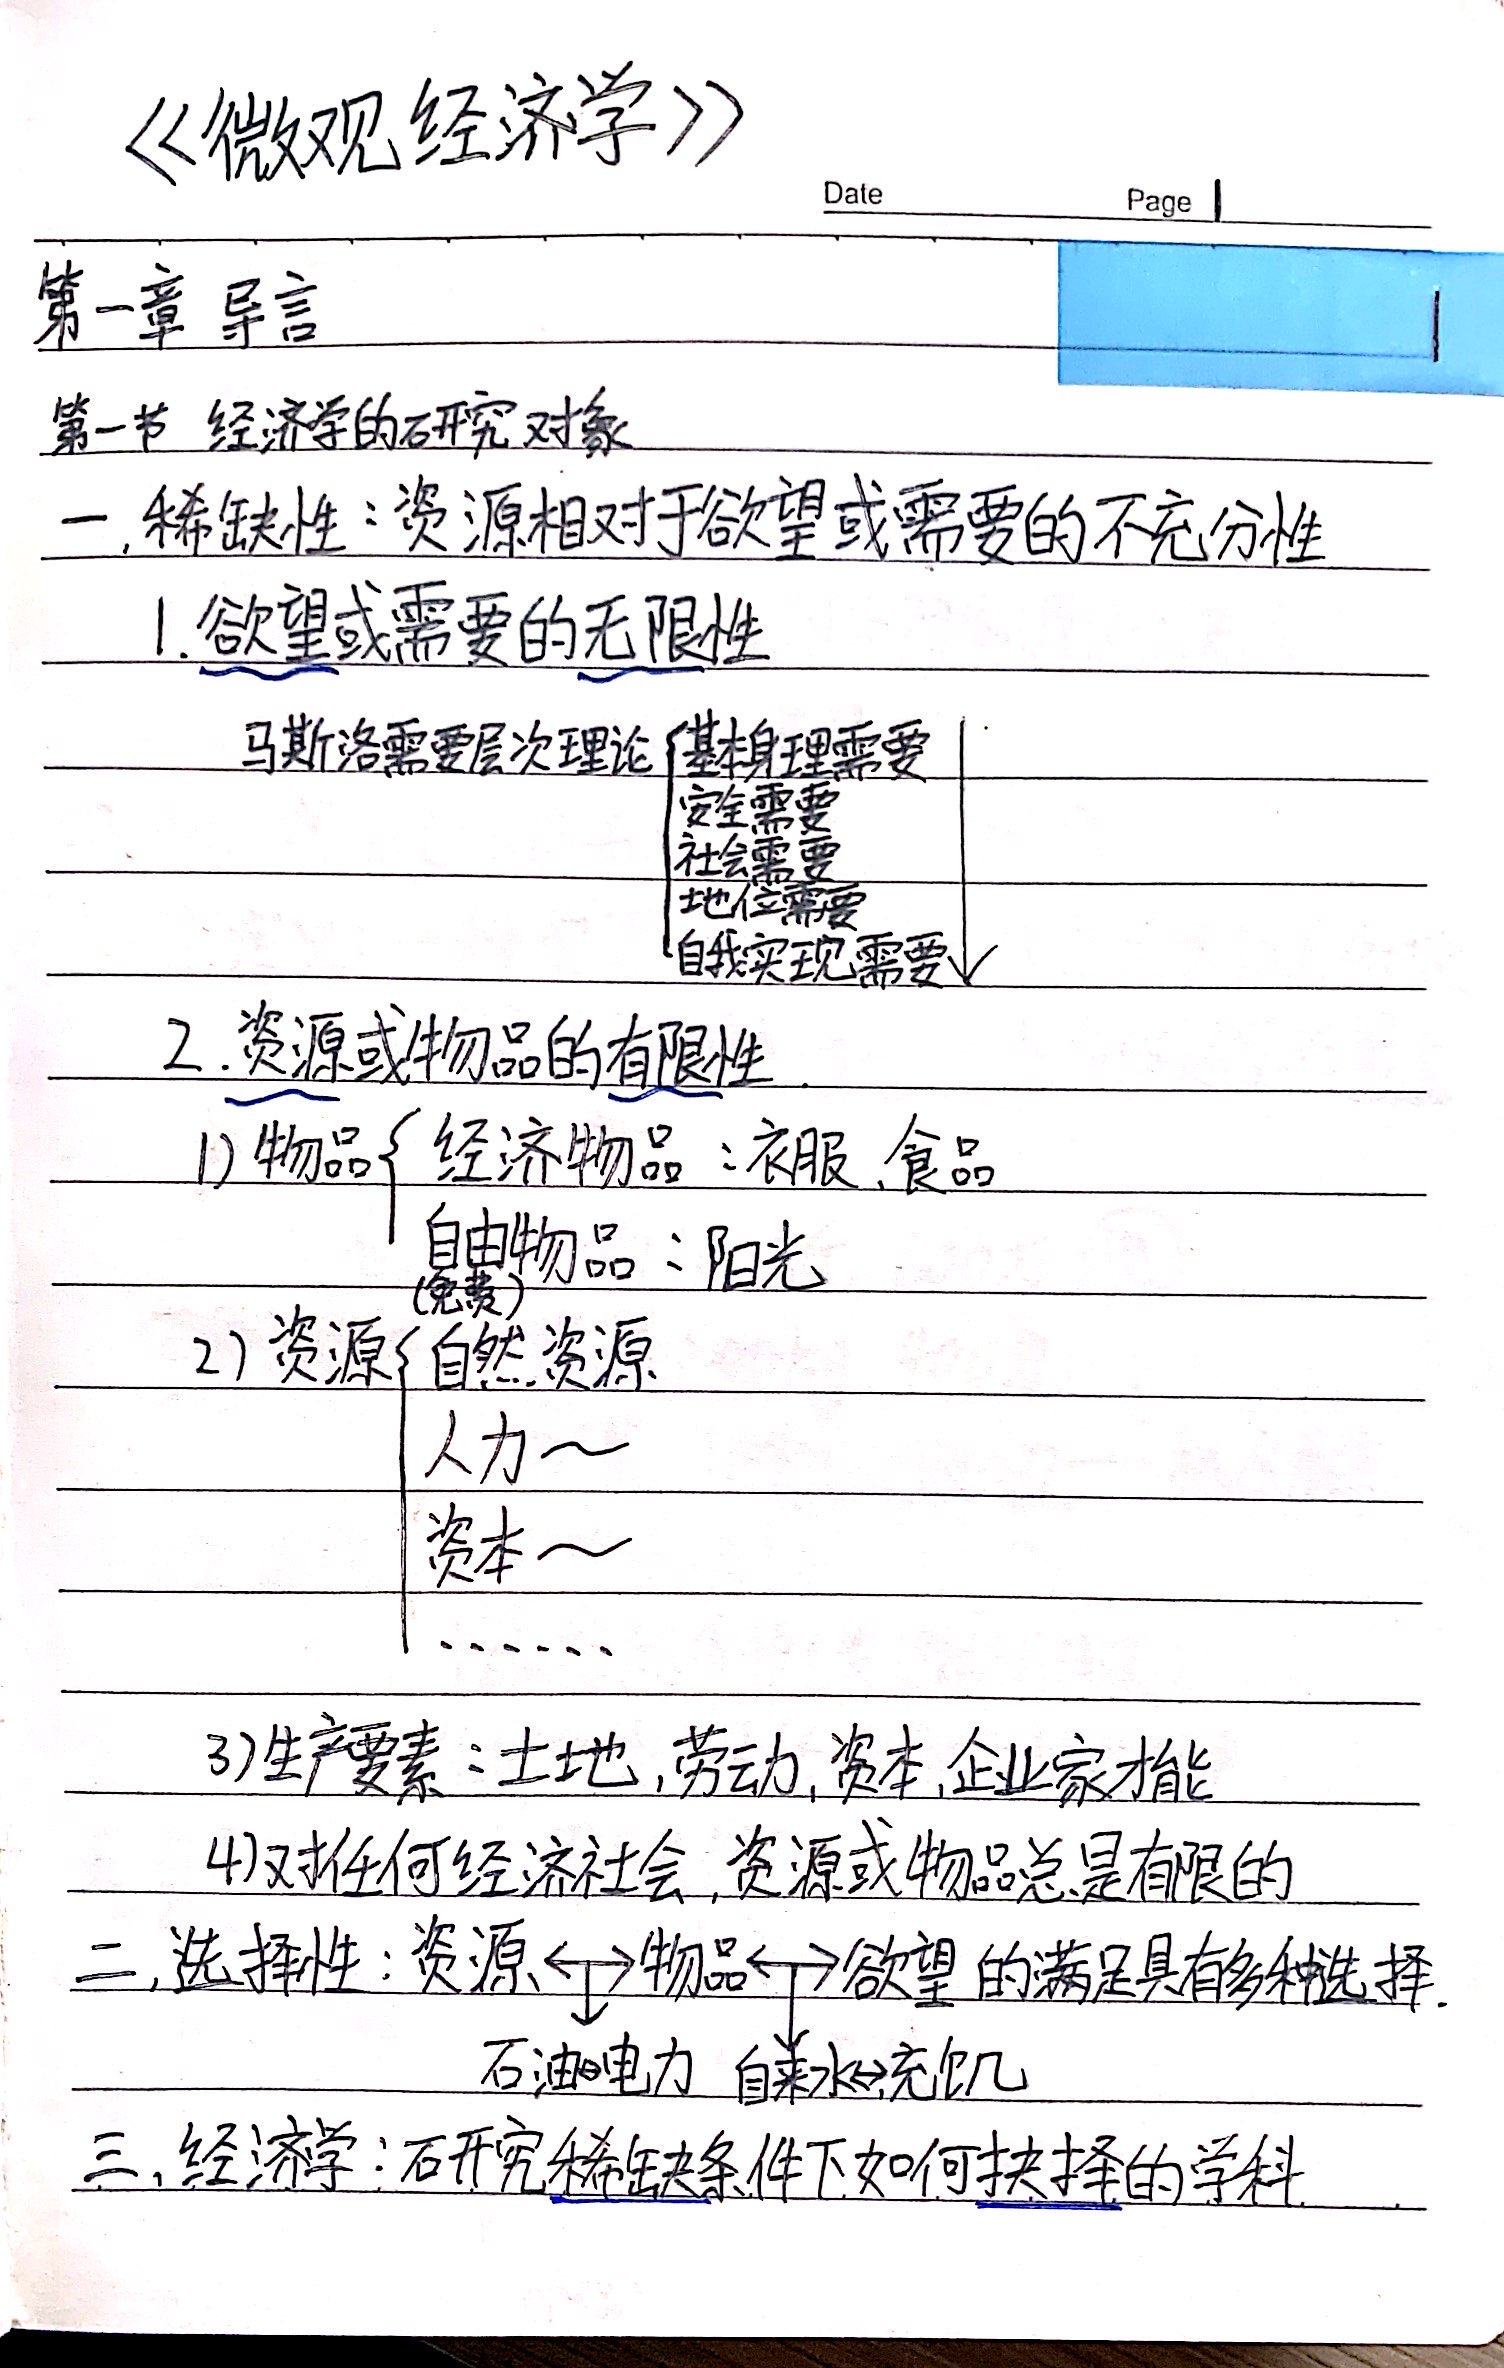 《微观经济学》
Date Page 1
第一章 导言
第一节 经济学的研究对象
一.稀缺性：资源相对于欲望或需要的不充分性
1.欲望或需要的无限性
马斯洛需要层次理论{基本身理需要
安全需要
社会需要
地位需要
自我实现需要
2.资源或物品的有限性.
1)物品{经济物品：衣服、食品
自由物品：阳光
(免费)
2)资源{自然资源
人力～
资本～
......
3)生产要素：土地,劳动,资本,企业家才能
4)对任何经济社会,资源或物品总是有限的
二.选择性：资源↔物品↔欲望的满足具有多种选择.
石油↔电力 自来水↔充饥
三.经济学：研究稀缺条件下如何抉择的学科.